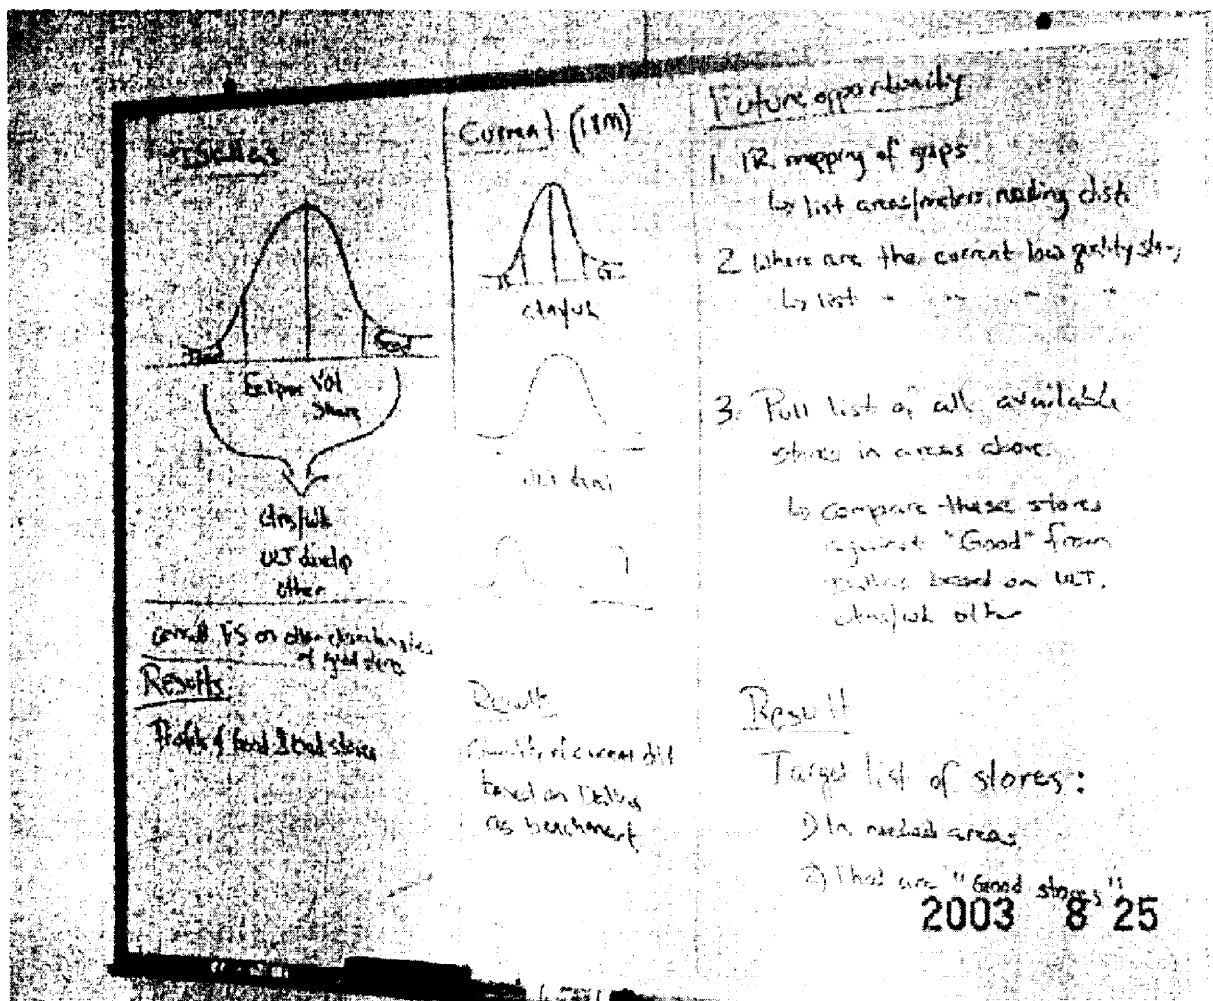 Dallas
Vol
Share
ctns/wk
ULT develop
other
consult FS on other characteristics
of good stores
Results
Profile of Good & Bad stores
Current (18m)
ctns/wk
ULT
Results
Quantify of current dist
based on Dallas
as benchmark
Future opportunity
1. mapping of gaps
↳ list areas/meters needing dist.
2. Where are the current low quality stores
↳ list " " " "
3. Pull list of all available
stores in areas above.
↳ compare these stores
against "Good" from
Dallas based on ULT,
ctns/wk other
Result
Target list of stores:
1) In needed areas
2) That are "Good stores"
2003 8 25